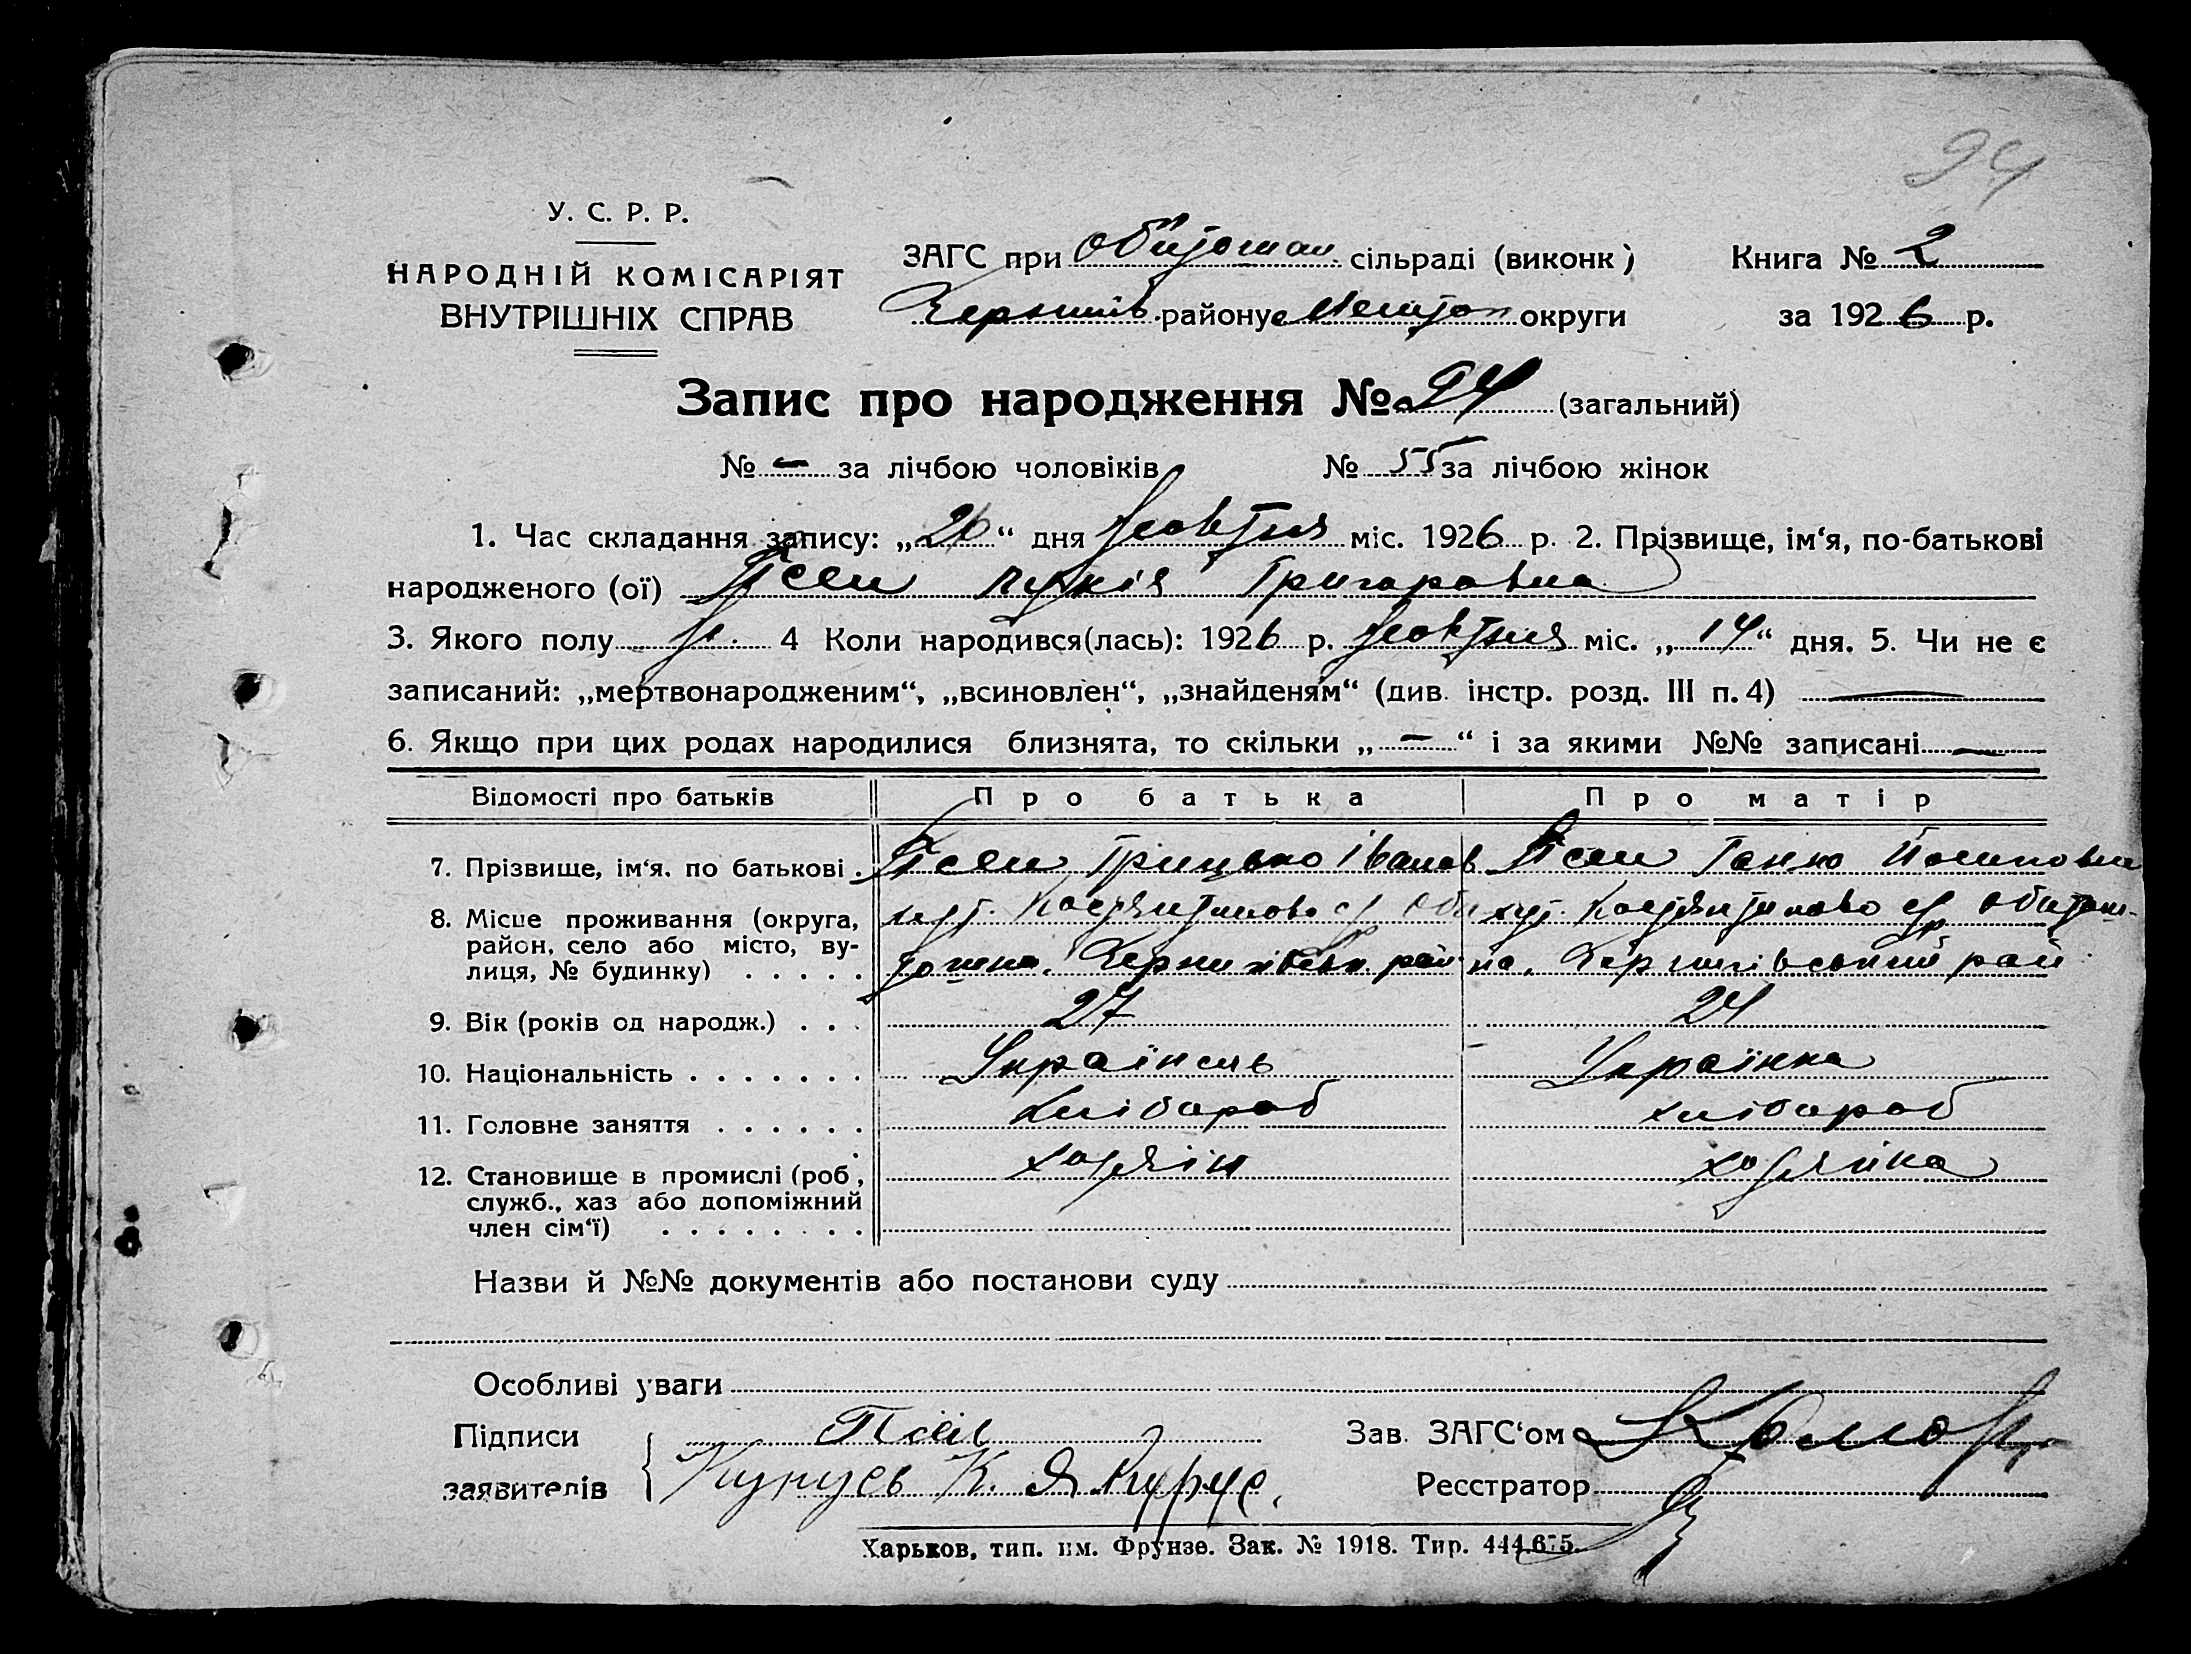 94
У. С. Р. Р.
НАРОДНІЙ КОМІСАРІЯТ
ВНУТРІШНІХ СПРАВ
ЗАГС при Обиточан. сільраді (виконк)
Книга № 2
Черниив. району Мелітоп округи
за 1926 р.
Запис про народження № 94 (загальний)
№ – за лічбою чоловіків № 55 за лічбою жінок
1. Час складання запису: „20“ дня жовтня міс. 1926 р. 2. Прізвище, ім‘я, по-батькові
народженого (ої) Псел Лукія Григоровна
3. Якого полу ж. 4 Коли народився(лась): 1926 р. жовтня міс. „14“ дня. 5. Чи не є
записаний: „мертвонародженим“, „всиновлен“, „знайденям“ (див. інстр. розд. III п. 4) —
6. Якщо при цих родах народилися близнята, то скільки „–“ і за якими №№ записані —
Відомості про батьків Про батька Про матір
7. Прізвище, ім‘я. по батькові . Псел Грицько Іванов Псел Ганна
8. Місце проживання (округа, хут. Костянтиново хут. Костянтиново
район, село або місто, ву-
лиця, № будинку) . . . . . Чернигівськ. рай Чернигівський рай
9. Вік (років од народж.) . . . 27 24
10. Національність . . . . . . . Українець Українка
11. Головне заняття . . . . . . Хлібороб хлібороб
12. Становище в промислі (роб , хозяін хозяйка
служб., хаз або допоміжний
член сім‘ї) . . . . . . . .
Назви й №№ документів або постанови суду
Особливі уваги
Підписи
заявителів
Зав. ЗАГС‘ом
Реєстратор
Харьков, тип. им. Фрунзе. Зак. № 1918. Тир. 444.675.